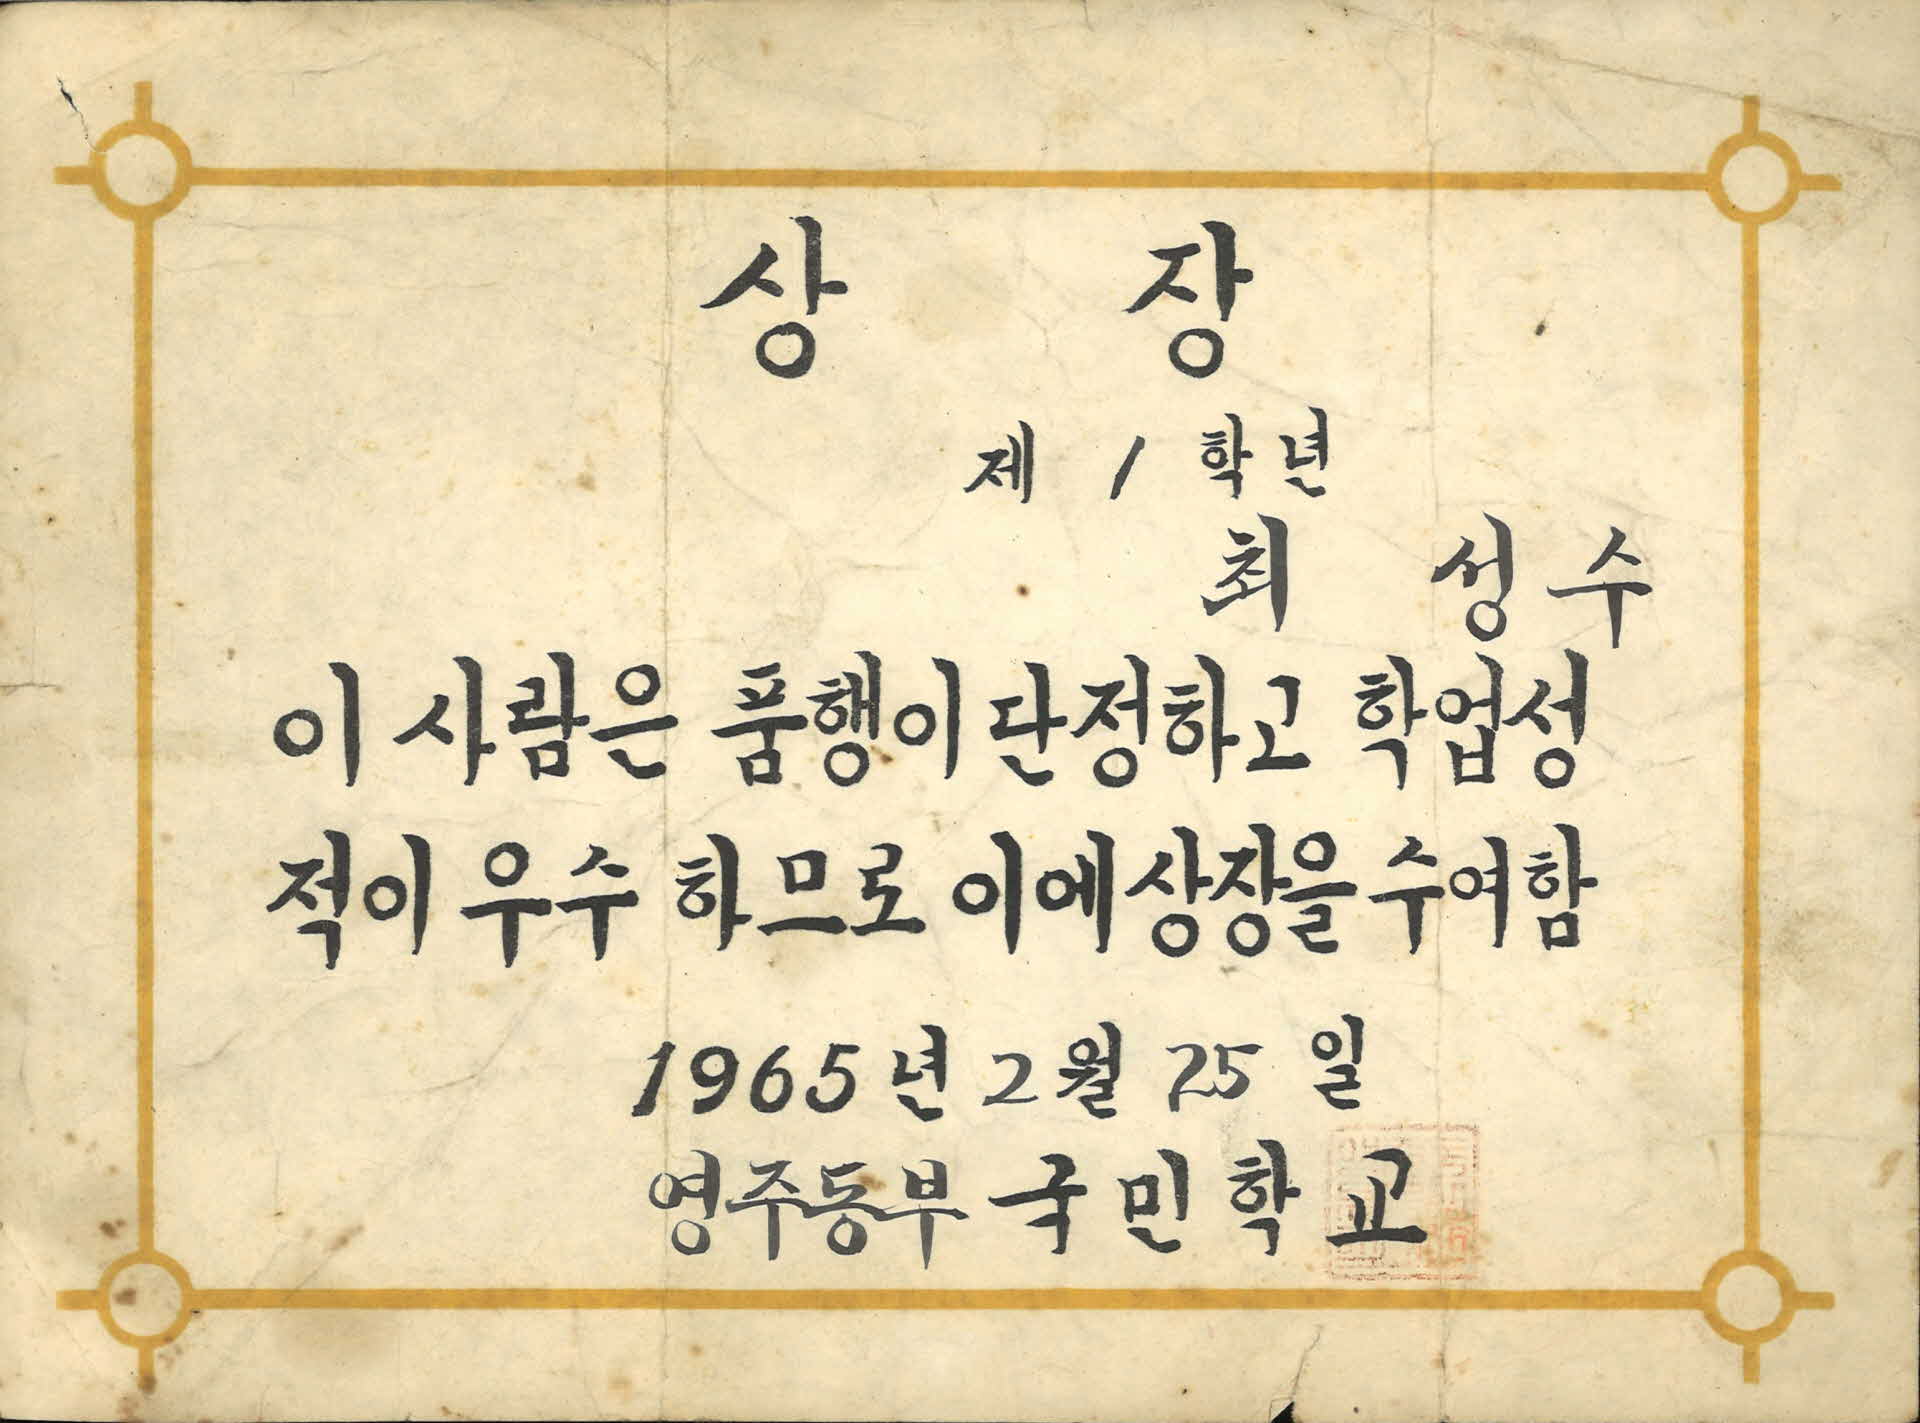 상 장
제 1 학년
최 성수
이 사람은 품행이 단정하고 학업성
적이 우수 하므로 이에 상장을 수여함
1965년 2월 25일
영주동부 국민학교